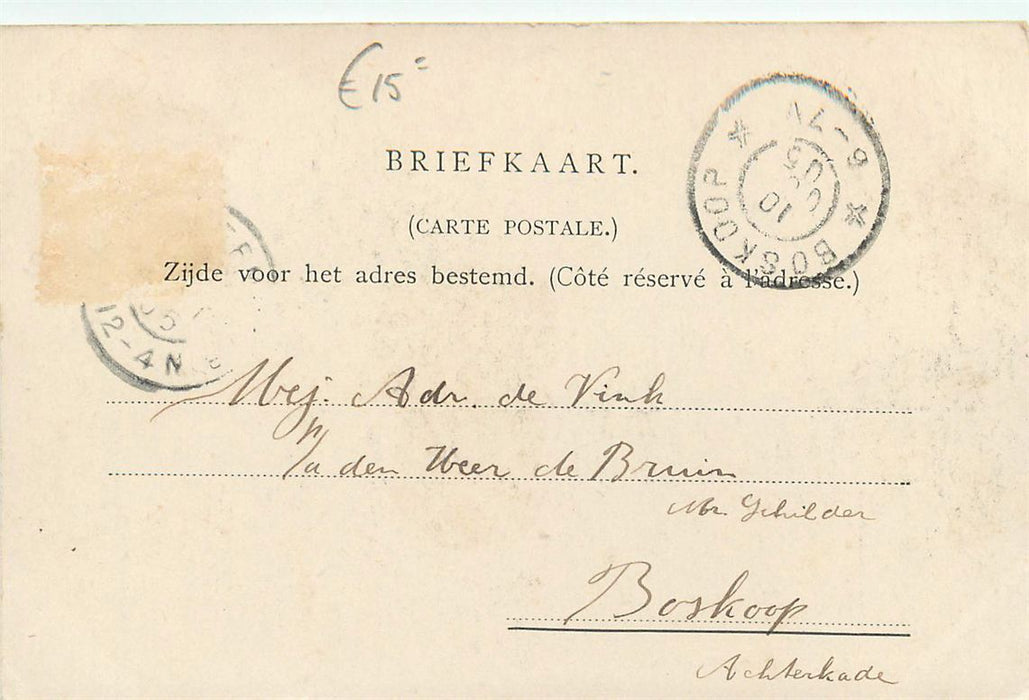 € 15=
BRIEFKAART.
(CARTE POSTALE.)
Zijde voor het adres bestemd. (Côté réservé à l'adresse.)
BOSKOOP
12-4N
Mej. Adr. de Vink
p/a den Heer de Bruin
Mr. Schilder
Boskoop
Achterkade